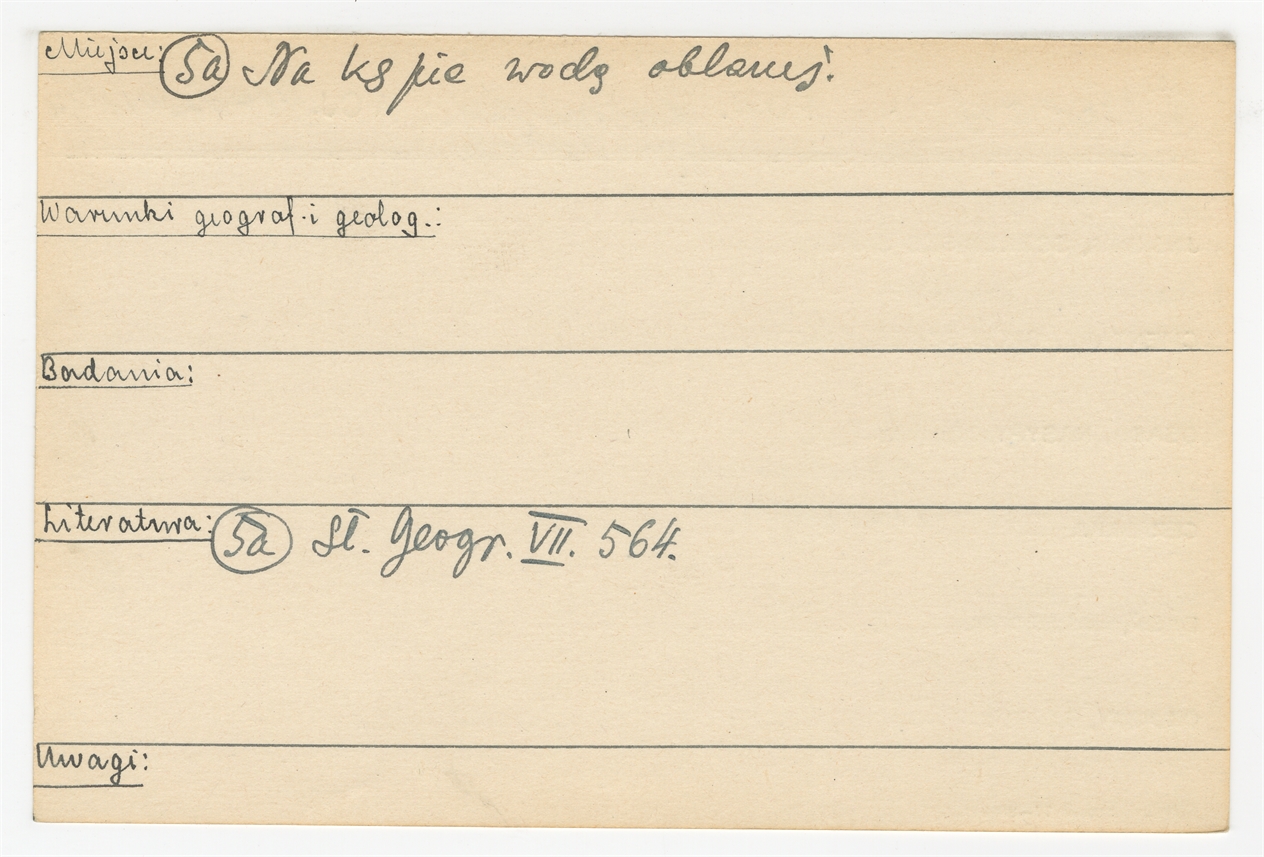 Miejsce: 5a Na kępie wodą oblanej.
Warunki geograf. i geolog.:
Badania:
Literatura: 5a Sł. Geogr. VII. 564.
Uwagi: